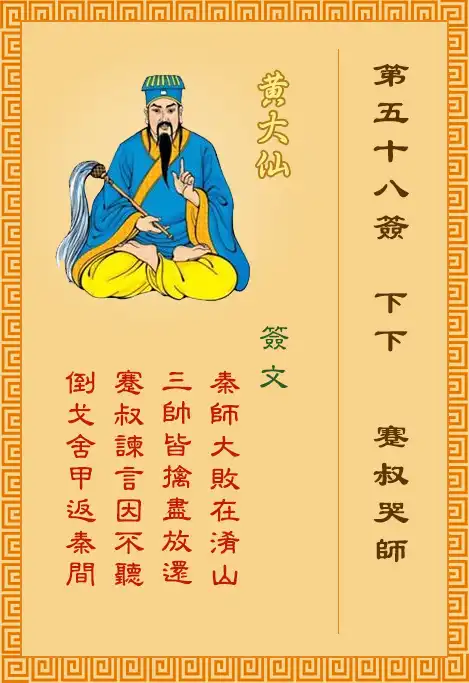 第五十八簽 下下 蹇叔哭師
黃大仙
簽文
秦師大敗在淆山
三帥皆擒盡放還
蹇叔諫言因不聽
倒戈舍甲返秦間